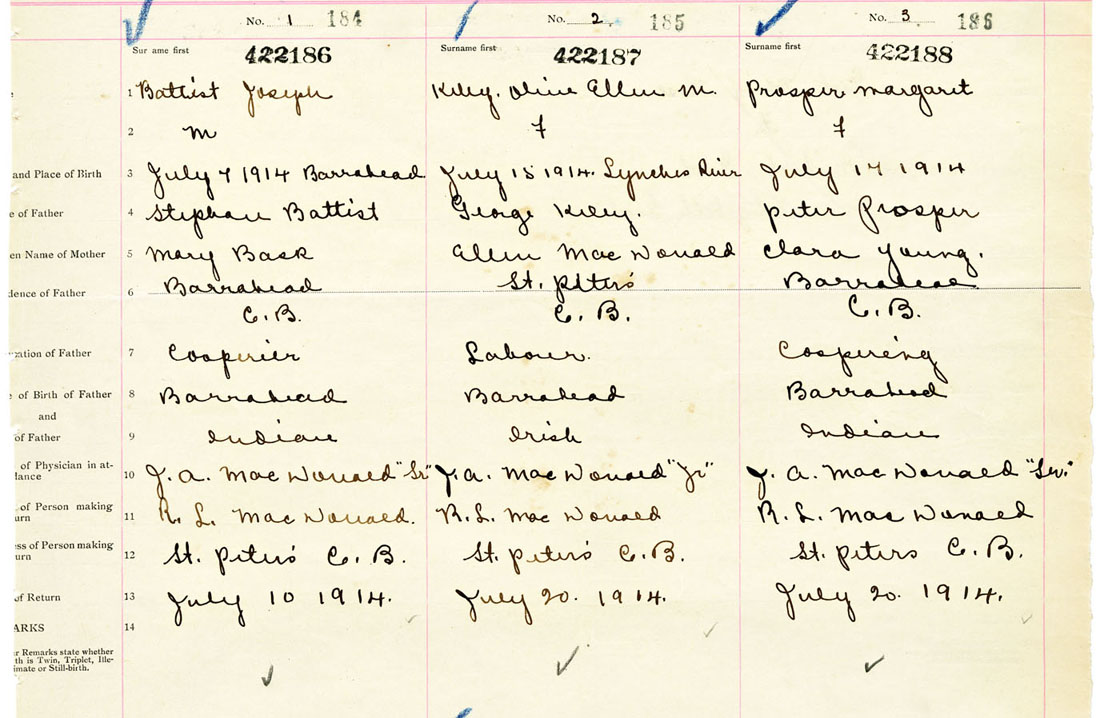 No. 1 184 No. 2 185 No. 3 186
Sur ame first 422186 Surname first 422187 Surname first 422188
1 Battist Joseph Kiley. Olive Ellen M. Prosper Margaret
2 M F F
and Place of Birth 3 July 7 1914 Barrahead July 15 1914. Lynches River July 17 1914
e of Father 4 Stephan Battist George Kiley. Peter Prosper
en Name of Mother 5 Mary Bask Ellen Mac Donald Clara Young.
dence of Father 6 Barrahead St. Peter's Barrahead
C.B. C.B. C.B.
ation of Father 7 Cooperier Labour. Coopereing
e of Birth of Father 8 Barrahead Barrahead Barrahead
and
of Father 9 Indian Irish Indian
of Physician in at-
dance 10 J. A. Mac Donald "Sr" J. A. Mac Donald "Jr" J. A. Mac Donald "Sr."
of Person making
urn 11 R. L. Mac Donald. R. L. Mac Donald R. L. Mac Donald
ess of Person making
urn 12 St. Peter's C.B. St. Peter's C.B. St. Peters C.B.
of Return 13 July 10 1914. July 20. 1914. July 20. 1914.
ARKS 14
r Remarks state whether
th is Twin, Triplet, Ille-
imate or Still-birth.